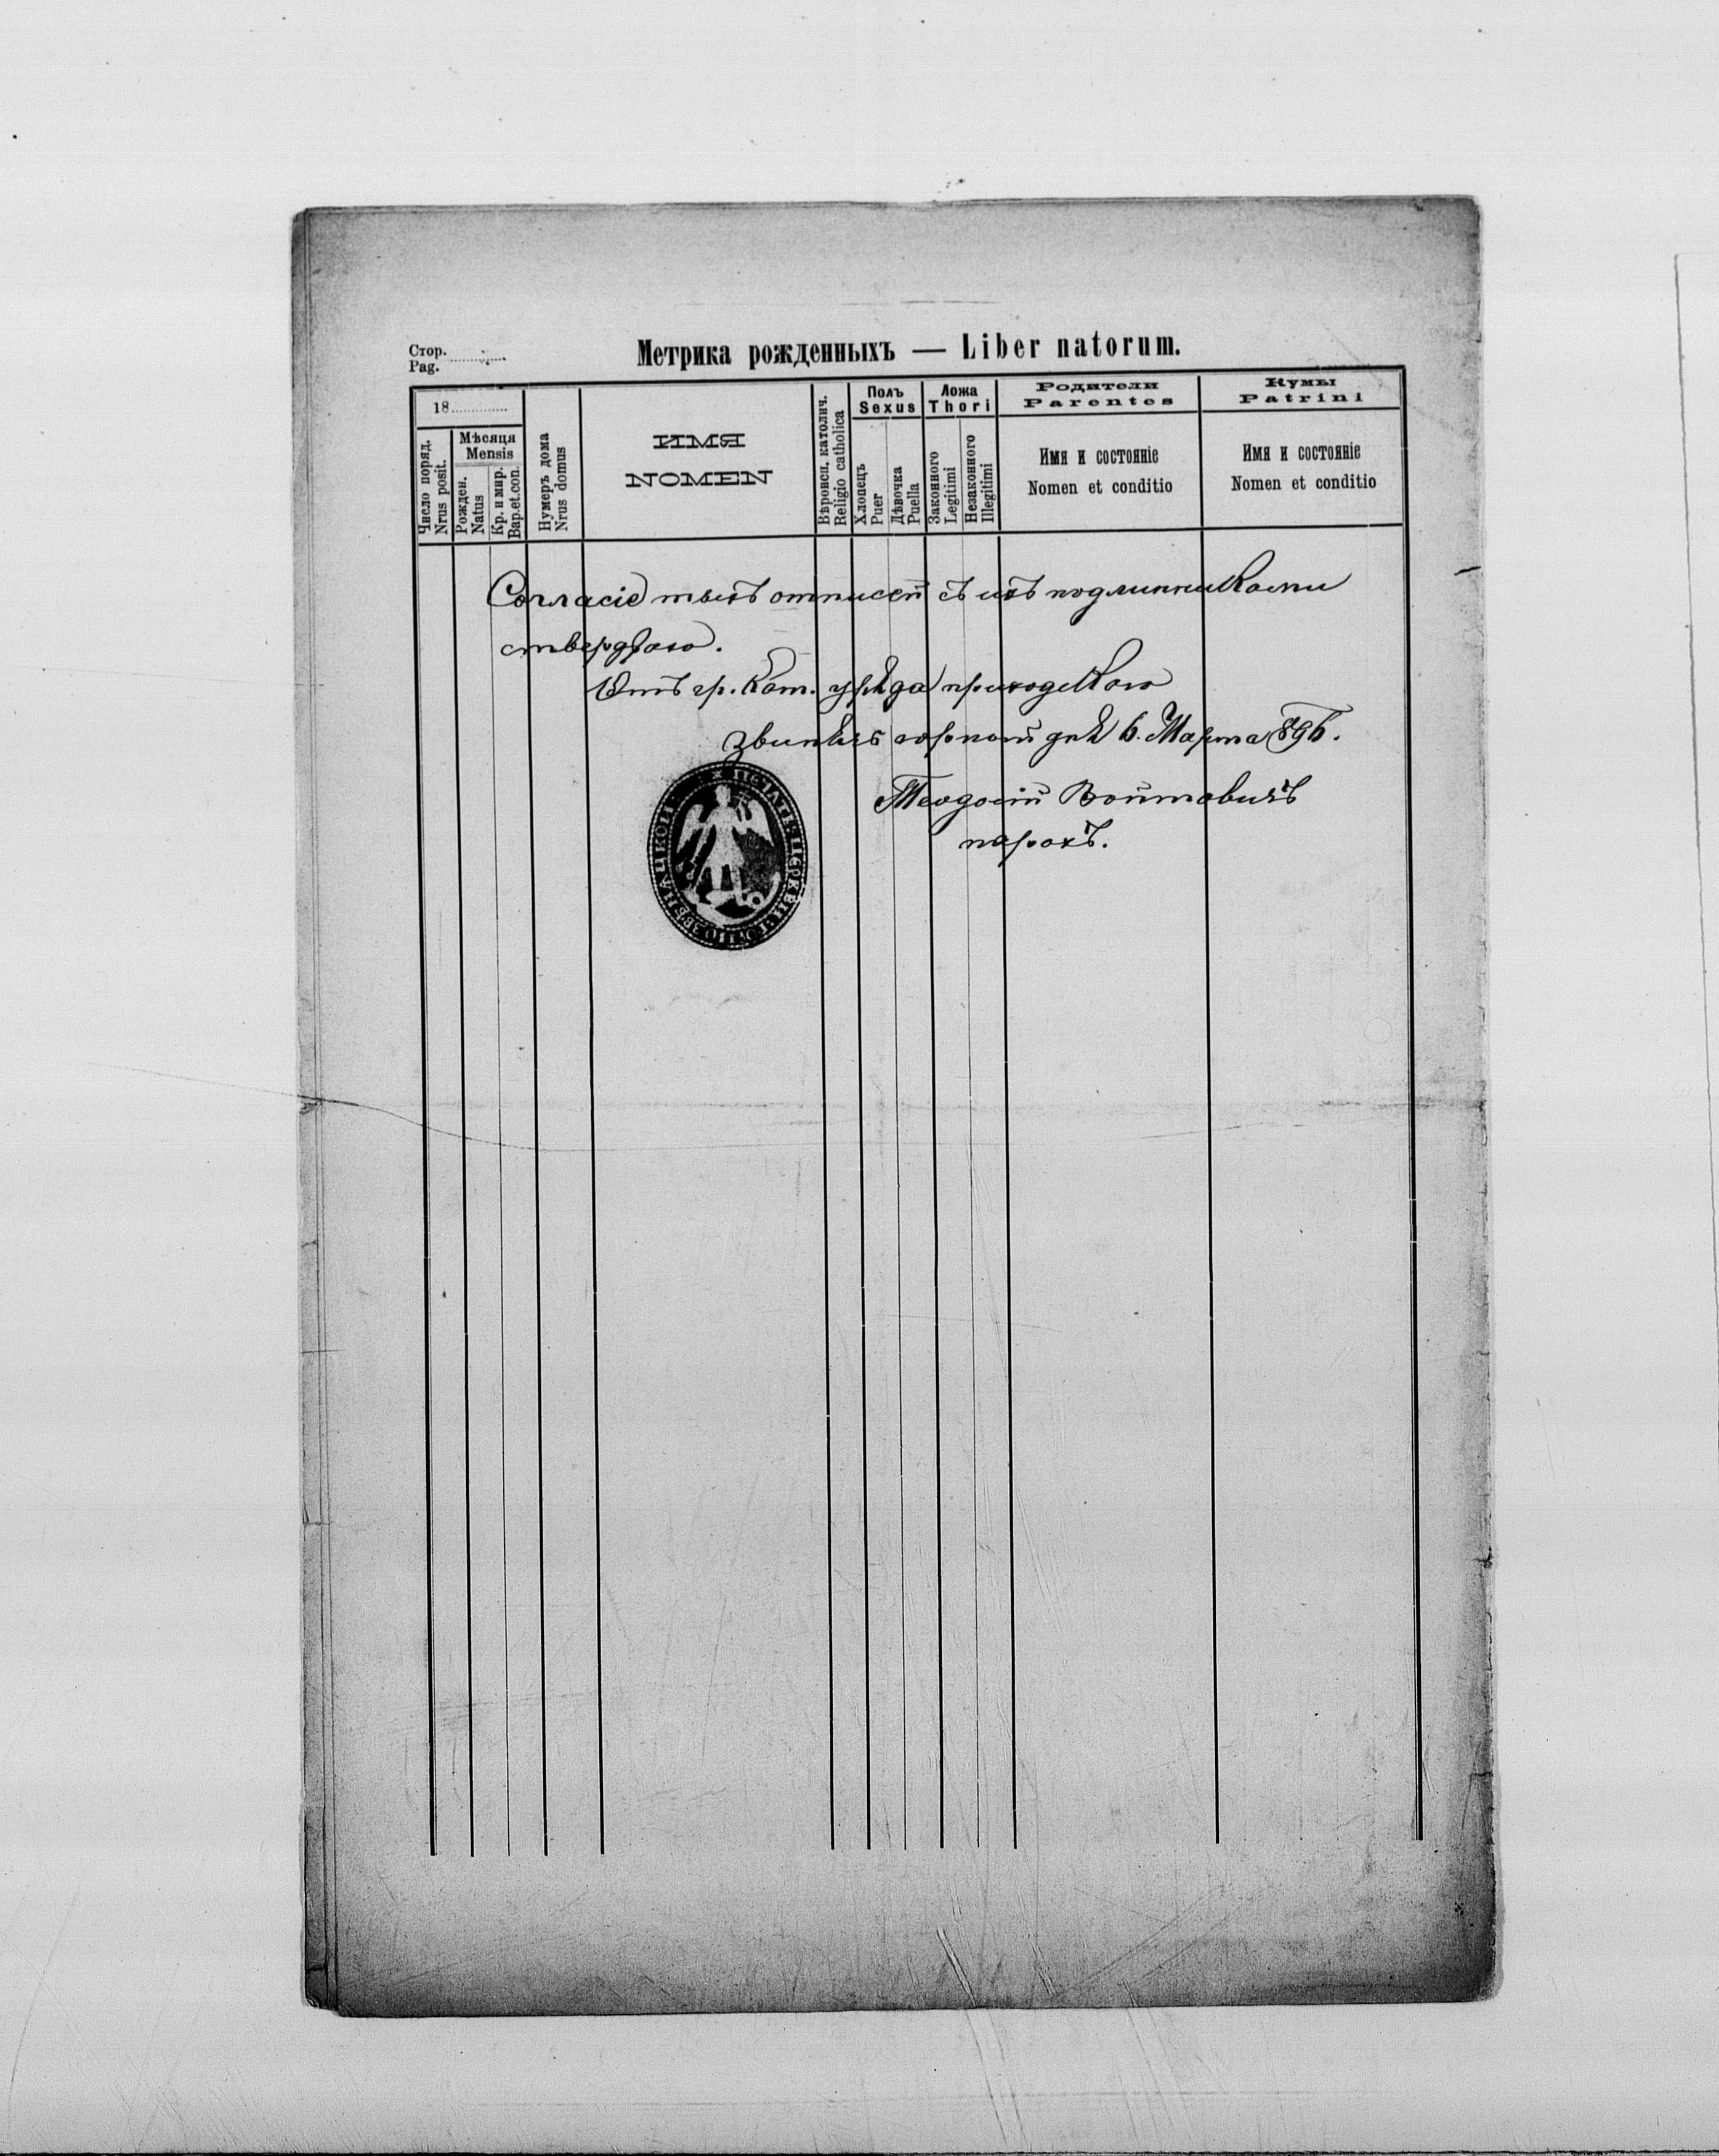 Стор.
Pag.
Метрика рожденныхъ — Liber natorum.
18
Число поряд.
Nrus posit.
Мѣсяця
Mensis
Рожден.
Natus
Кр. и мир.
Bap. et. con.
Нумеръ дома
Nrus domus
ИМЯ
NOMEN
Religio catholica
Полъ
Sexus
Хлопецъ
Puer
Дѣвочка
Puella
Ложа
Thori
Законного
Legitimi
Незаконного
Illegitimi
Родители
Parentes
Имя и состоянiе
Nomen et conditio
Кумы
Patrini
Имя и состоянiе
Nomen et conditio
Согласіе тыхъ отписей съ ихъ подлинниками
стверджаю.
Отъ гр. кат. уряда приходского
горной дня 6. Марта 896.
Теодосій Войтовичъ
парохъ.